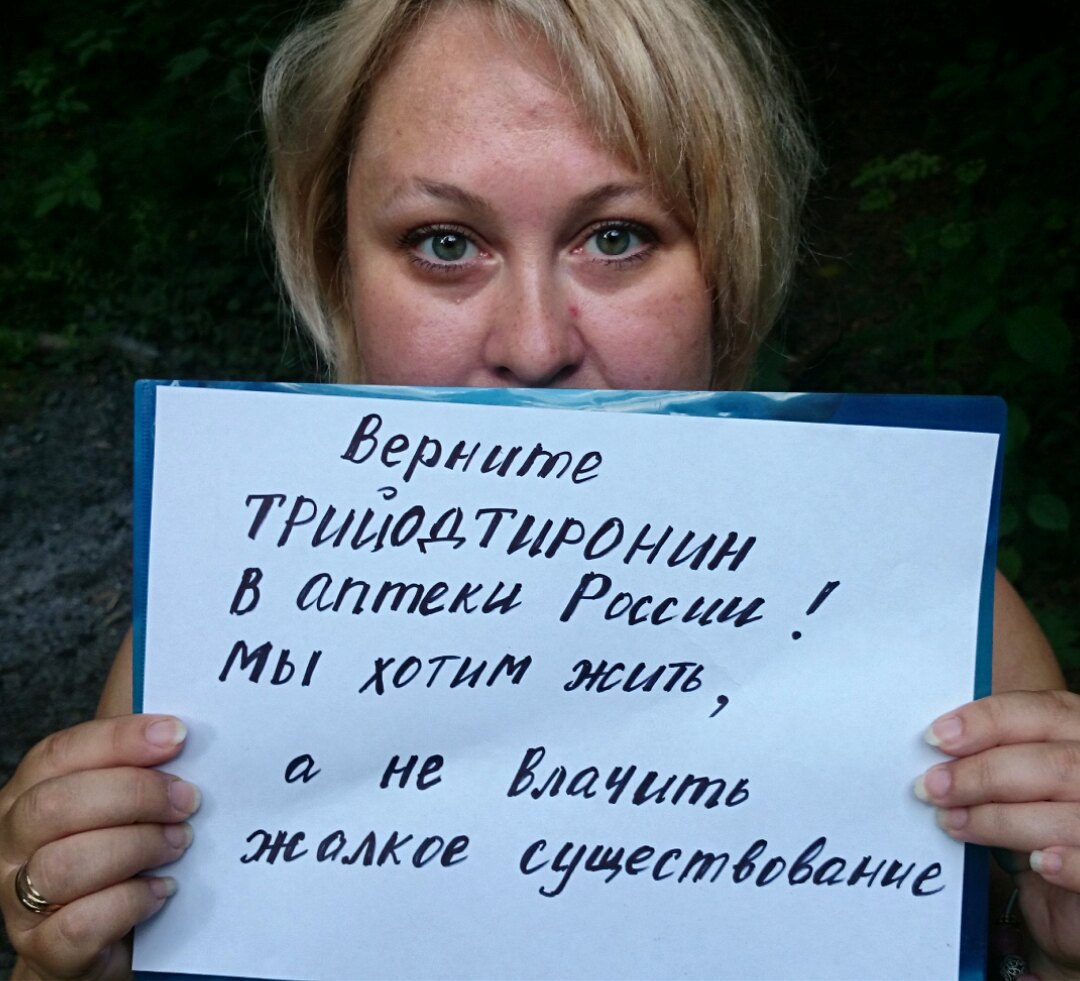 Верните
ТРИЙОДТИРОНИН
в аптеки России!
Мы хотим жить,
а не влачить
жалкое существование